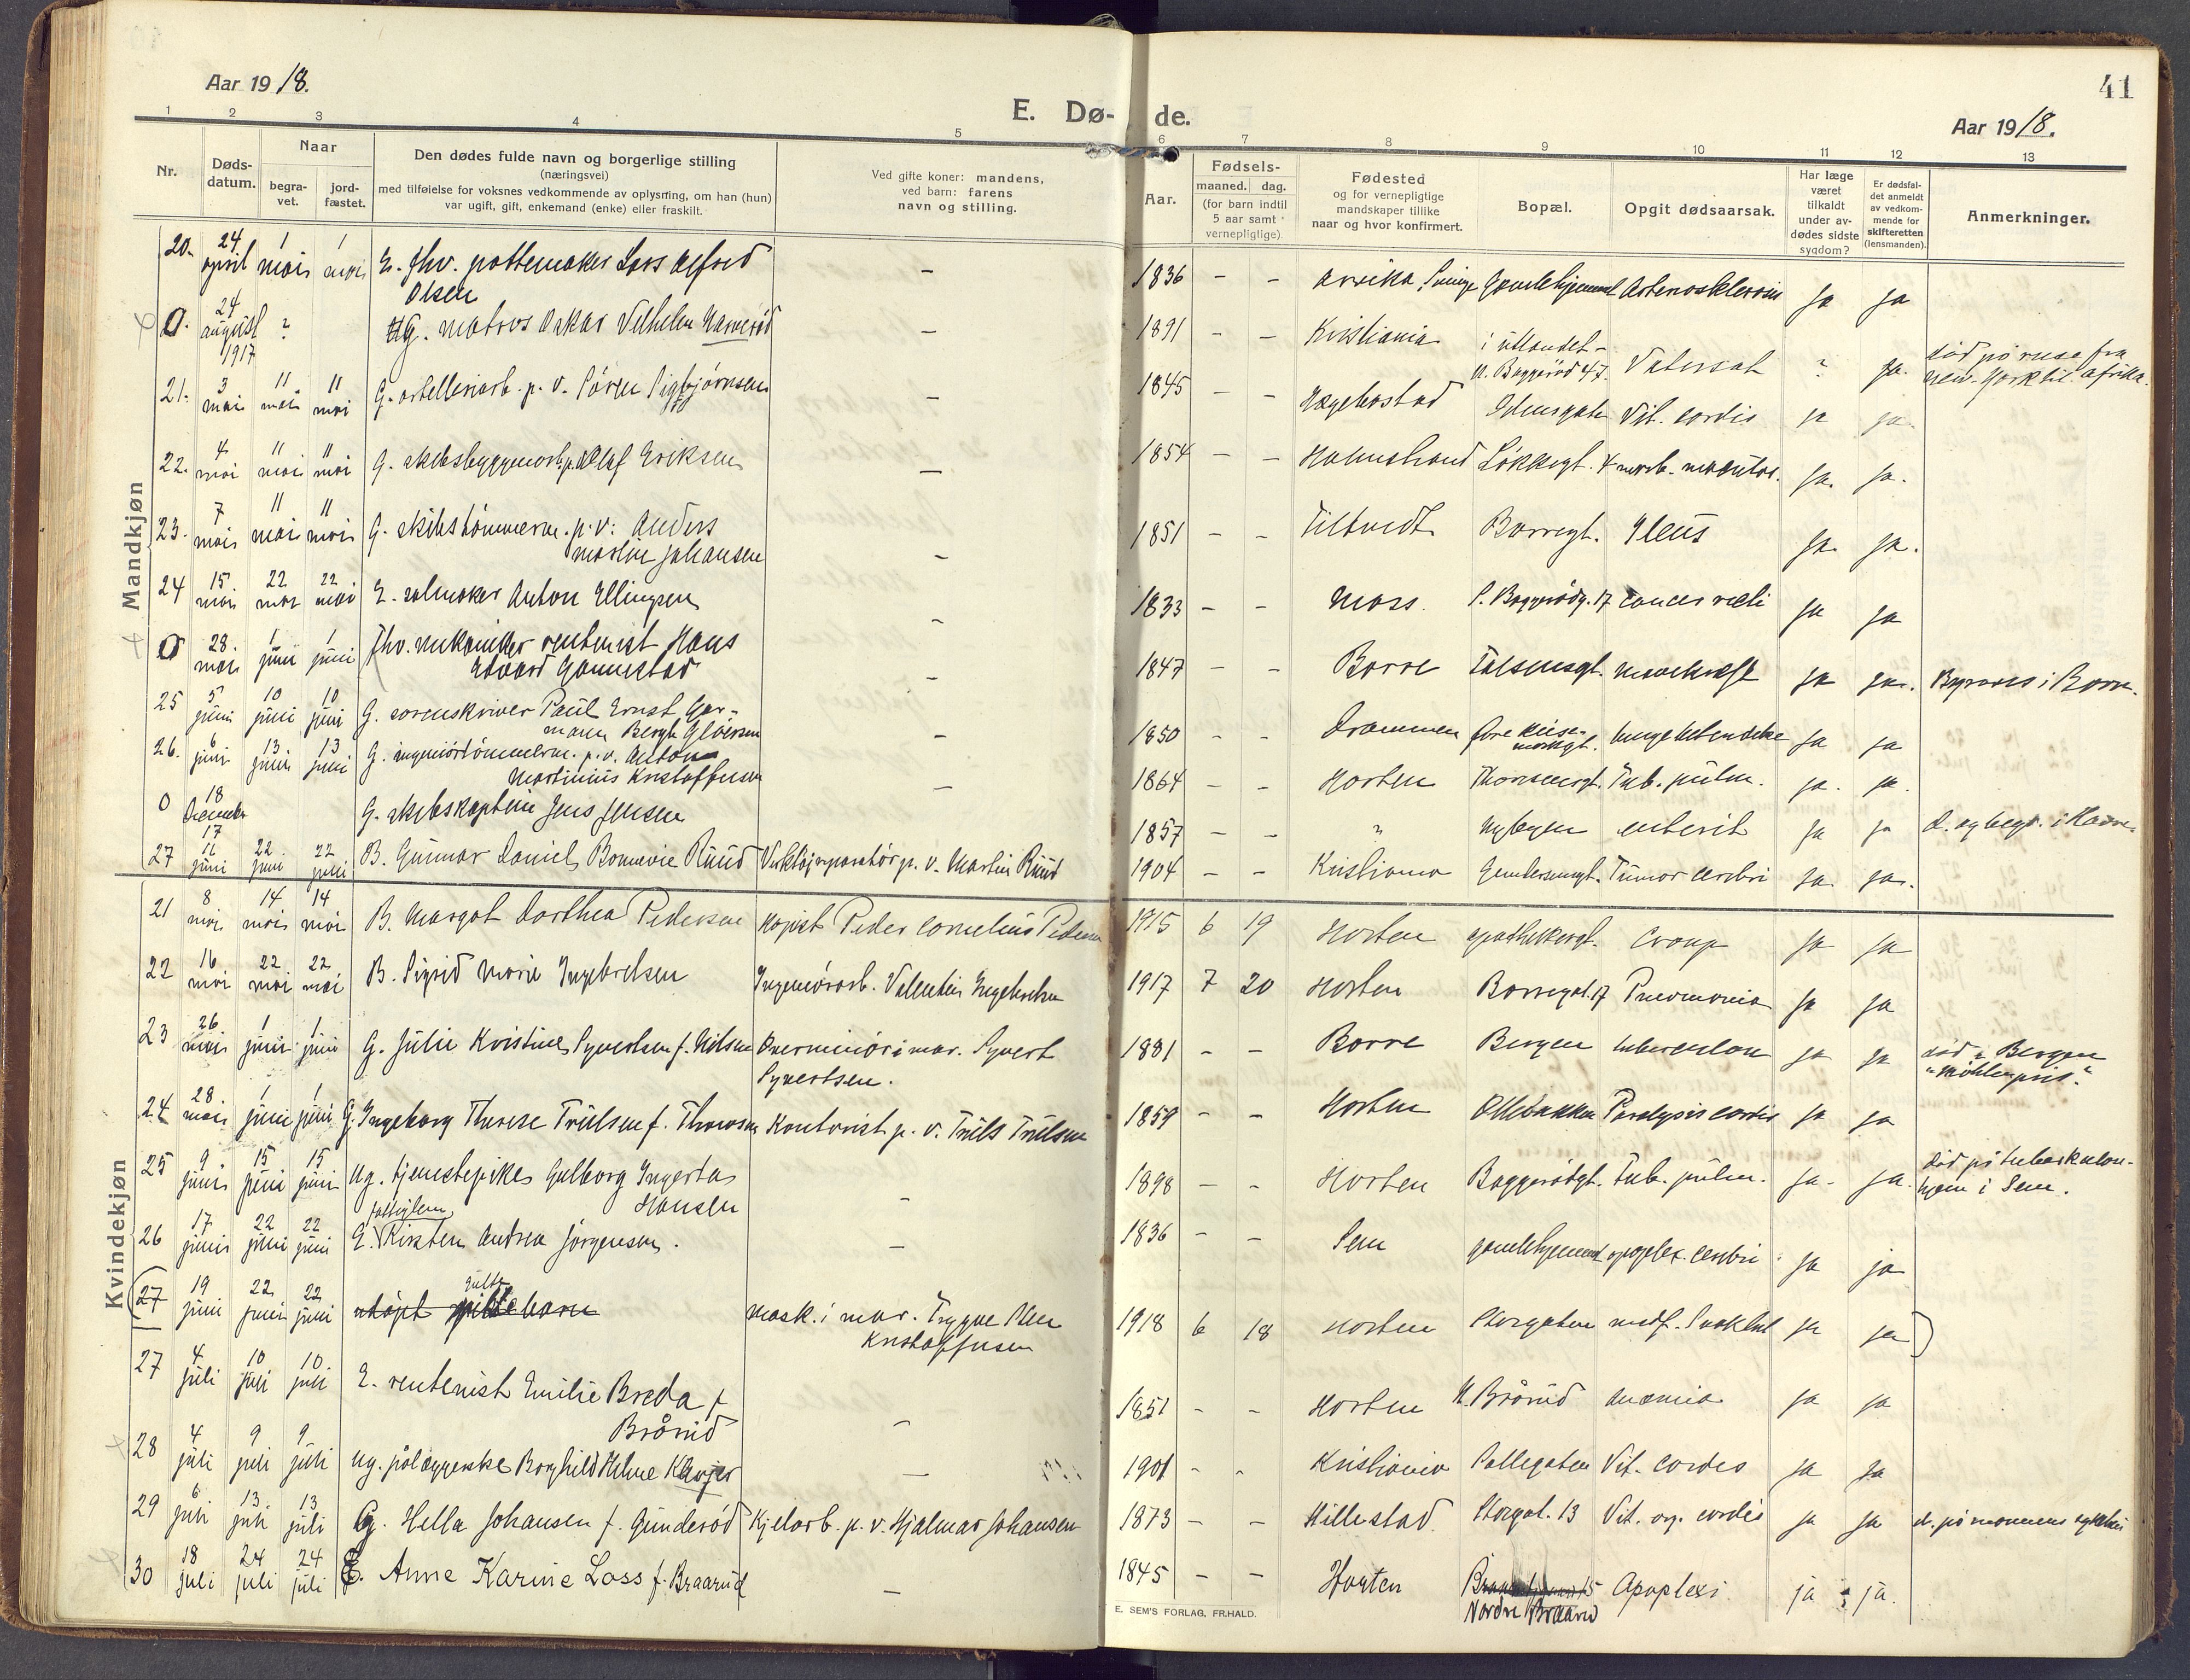 Aar 1918.
E. Dø- de.
41
Aar 1918.
1 2 3 4 5 6 7 8 9 10 11 12 13
Nr.
Døds-
datum.
Naar
begra-
vet.
jord-
fæstet.
Den dødes fulde navn og borgerlige stilling
(næringsvei)
med tilføielse for voksnes vedkommende av oplysning, om han (hun)
var ugift, gift, enkemand (enke) eller fraskilt.
Ved gifte koner: mandens,
ved barn: farens
navn og stilling.
Aar.
Fødsels-
maaned. dag.
(for barn indtil
5 aar samt
vernepligtige)
Fødested
og for vernepligtige
mandskaper tillike
naar og hvor konfirmert.
Bopæl.
Opgit dødsaarsak.
Har læge
været
tilkaldt
under av-
dødes sidste
sygdom?
Er dødsfal-
det anmeldt
av vedkom-
mende for
skifteretten
(lensmanden).
Anmerkninger.
Mandkjøn
20. 24 april 1 mai 1 mai E. fhv. pottemaker Lars Alfred Olsen – 1836 – – Arvika, Sverige Gamlehjemmet Arterosklerosis ja ja
0. 24 august 1917 ? Ug. matros Oskar Vilhelm – 1891 – – Kristiania i utlandet – N. Baggerød 47. ? ja. død på reise fra New-York til Afrika.
21. 3 mai 11 mai 11 mai G. artelleriarb. p. v. Søren Sigbjørnsen – 1845 – – Hægebostad Vit. cordis ja ja.
22. 4 mai 11 mai 11 mai G. skibsbyggerarb. p. v. Olaf Eriksen – 1854 – – Holmestrand Løkkegt. 4 ja. ja.
23. 7 mai 11 mai 11 mai G. skibstømmerm. p. v. Anders Martin Johansen – 1851 – – Borregt. Ileus ja. ja.
24 15 mai 22 mai 22 mai E. salmaker Anton Ellingsen – 1833 – – Moss. S. Baggerødg. 17 cancer recti ja ja
0 28. mai 1 juni 1 juni Fhv. mekaniker rentenist Hans Edvard Gannestad – 1847 – – Borre Falsensgt. mavekræft ja ja. Begraves i Borre.
25 5 juni 10 juni 10 juni G. sorenskriver Paul Ernst Ger- mann Bergh Gløersen – 1850 – – Drammen lungebetændelse ja ja
26. 6 juni 13 juni 13 juni G. ingeniørtømmerm. p. v. Anton Martinius Kristoffersen – 1864 – – Horten Thoresensgt. Tub. pulm. ja. ja.
0 18 December 17 G. skibskaptein Jens Jensen 1857 – – " Nybyen enterit ja ja d. og begr. i Havre.
27 11 juni 22 juni 22 juni B. Gunnar Daniel Bonnevie Ruud Verktøireparatør p. v. Martin Ruud 1904 – – Kristiania Tumor cerebri ja. ja.
Kvindekjøn
21 8 mai 14 mai 14 mai B. Margot Dorthea Pedersen Kopist Peder Cornelius Pedersen 1915 6 19 Horten Apothekergt. Croup ja ja
22 16 mai 22 mai 22 mai B. Sigrid Marie Ingebretsen Ingeniørarb. Valentin Ingebretsen 1917 7 20 Horten Borregat. 17 Pneumonia ja ja
23 26 mai 1 juni 1 juni G. Julie Kristine Syvertsen f. Nilsen Overminør i mar. Syvert Syvertsen. 1881 – – Borre Bergen tuberculose ja ja død i Bergen "Møhlenpris".
24. 28 mai 1 juni 1 juni G. Ingeborg Therese Trulsen f. Thoresen Kontorist p. v. Truls Trulsen 1859 – – Horten Øllebakken Paralysis cordis ja ja
25 9 juni 15 juni 15 juni Ug. tjenestepike Gulborg Ingerta Hansen – 1898 – – Horten Baggerødgt. Tub. pulm. ja. ja. død på tuberkulose- hjem i Sem.
26 17 juni 22 juni 22 juni E. fattiglem Kirsten Andrea Jørgensen. – 1836 – – Sem gamlehjemmet apoplex. cerebri ja ja
(27 19 juni 22 juni 22 juni utøpt pikebarn Mask. i mar. Trygve Olen Kristoffersen 1918 6 18 Horten Storgaten medf. Svakhet ja ja)
27 4 juli 10 juli 10 juli E. rentenist Emilie Breda f. Brårud – 1851 – – Horten N. Brårud anæmia ja ja
28 4 juli 9 juli 9 juli Ug. pålæggerske Borghild Helene – 1901 – – Kristiania Vit. cordis ja ja
29 6 juli 13 juli 13 juli G. Hella Johansen f. Gunderød Kjelarb. p. v. Hjalmar Johansen 1873 – – Hillestad. Storgat. 13 Vit. org. cordis ja ja d. på marinens sykehus
30 18 juli 24 juli 24 juli E. Anne Karine Loss f. Braarud – 1845 – – Horten Nordre Braarud Apoplexi ja ja.
E. SEM'S FORLAG, FR.HALD.